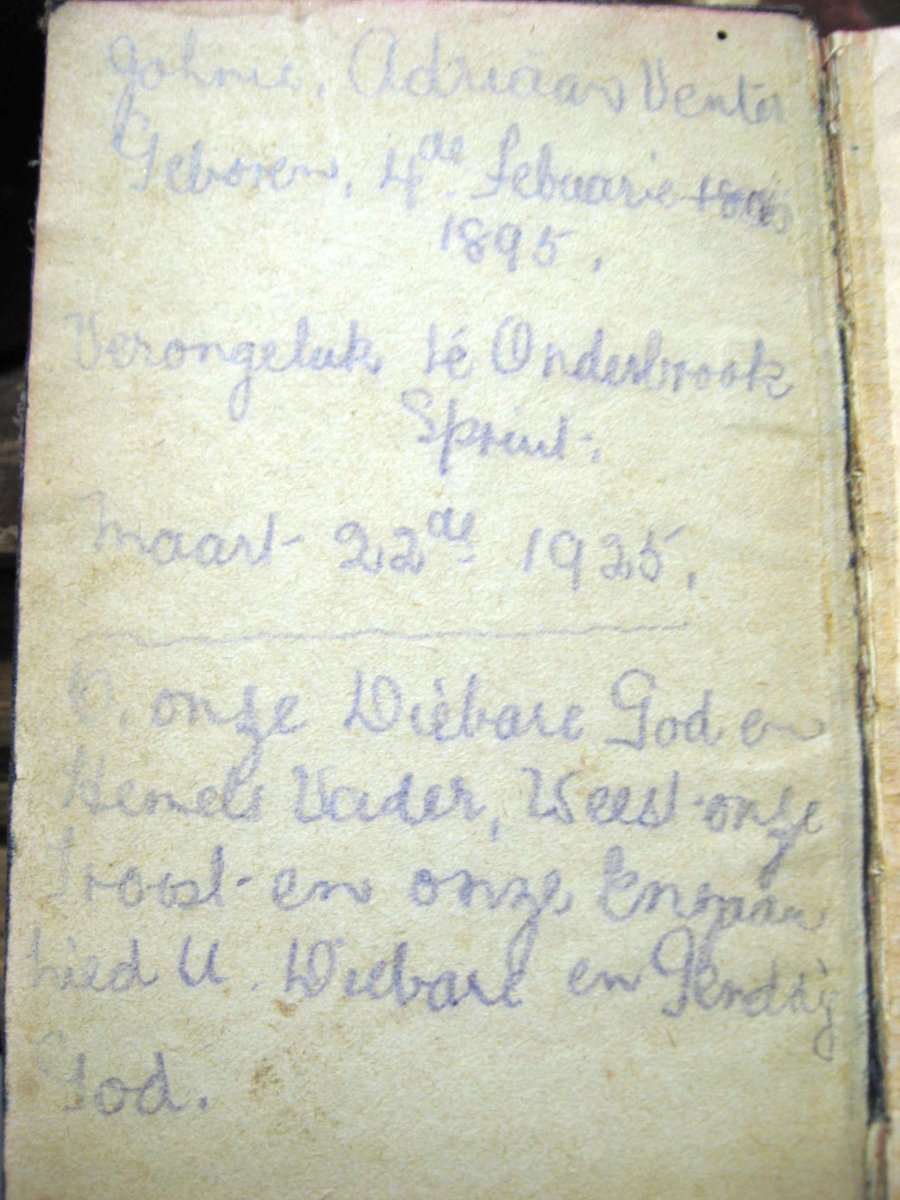 Johnie, Adriäan Venter
Geboren, 4de Febuarie
1895.
Verongeluk té Onderbrook
Spruit.
Maart 22de 1925.
O. onze Diebare God en
Hemels Vader, Weest onze
Troost en onze
hied U. Diebare en Genadig
God.